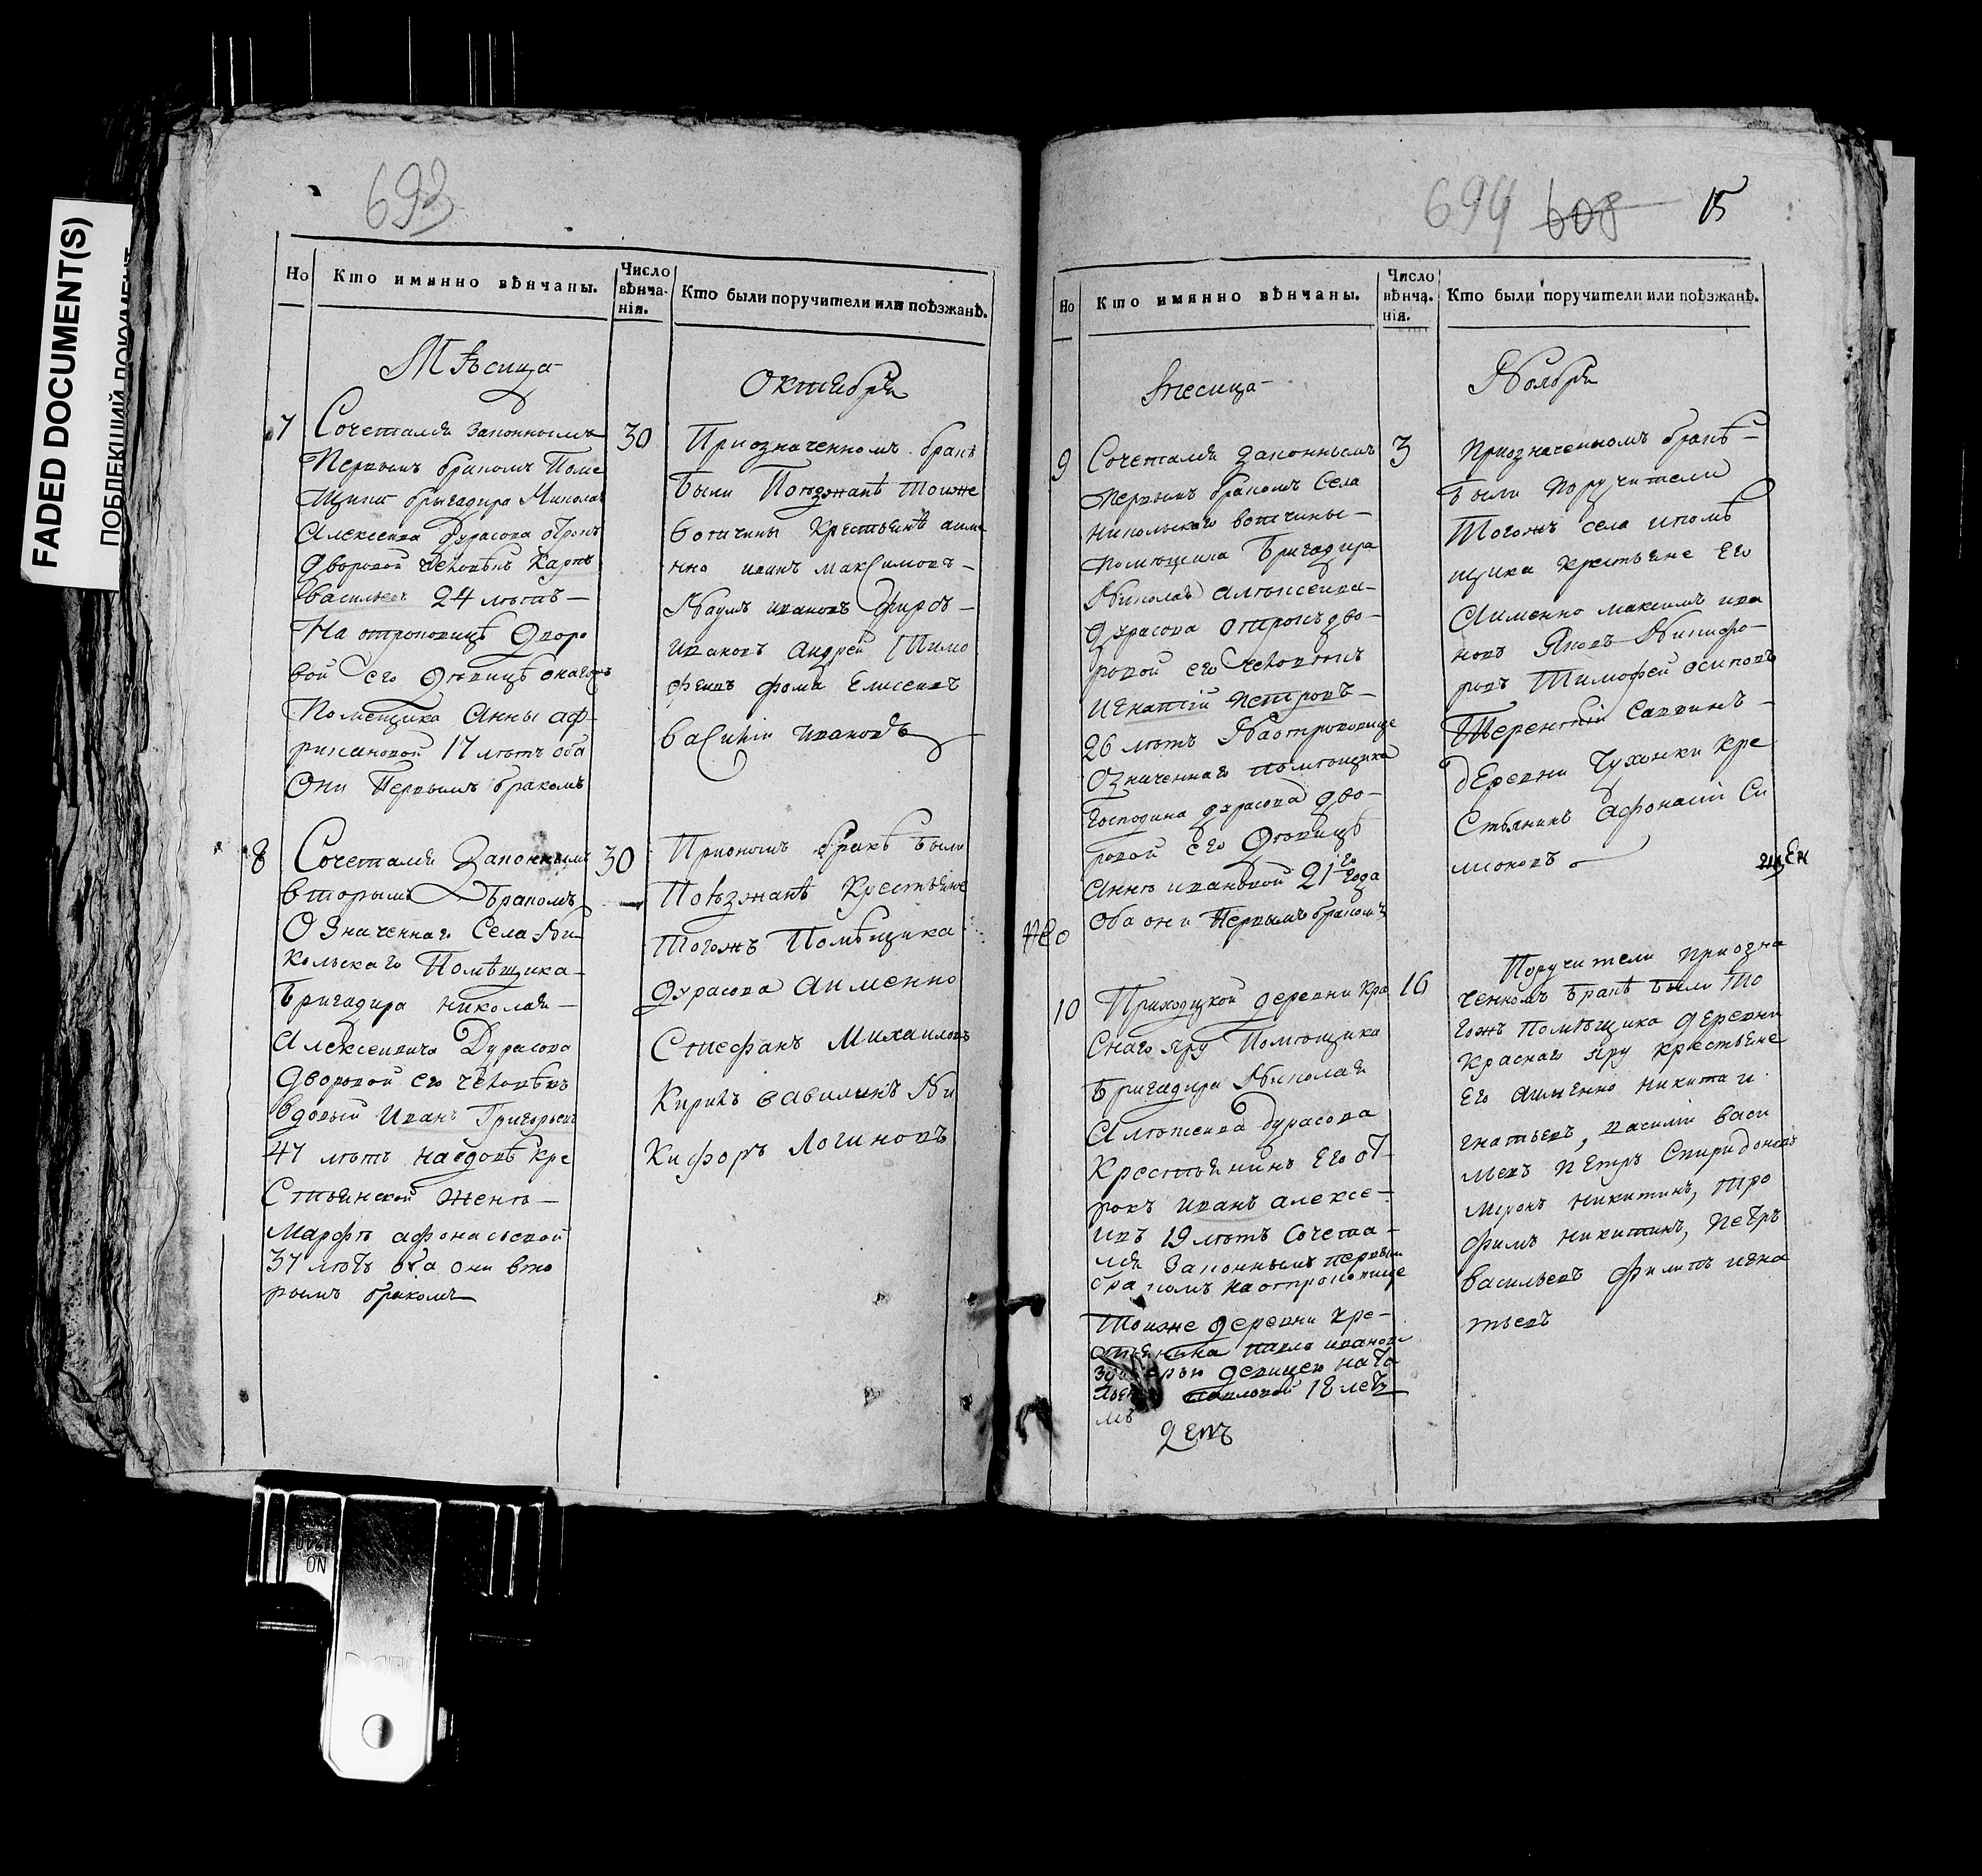 FADED DOCUMENT(S)
693
Но
Кто имянно вѣнчаны.
Число
вѣнча-
нія.
Кто были поручители или поѣзжанѣ.
Мѣсяца
Октября
7
Сочетался законнымъ
первымъ бракомъ Поме
щика бригадира Николая
Алексеева Дурасова отрокъ
дворовой человѣкъ Карпъ
Васильевъ 24 лѣтъ
На отроковицѣ дворо
вой его девицѣ онагожъ
Помещика Анны Аф
рикановой 17 лѣтъ оба
Они Первымъ бракомъ
30
Приозначенномъ бракѣ
были Поѣзжанѣ тоиже
вотчины Крестьянѣ аиме
нно иванъ максимовъ
Наумъ ивановъ Фирсъ
ивановъ андрей Тимо
феевъ фома Елисеевъ
василий ивановъ
8
Сочетался Законнымъ
вторымъ Бракомъ
Означеннаго Села Ни
кольскаго Помѣщика
Бригадира николая
Алексеевича Дурасова
дворовой его человѣкъ
вдовый Иванъ Григорьевъ
47 лѣтъ на вдовѣ кре
стьянской женѣ
Марфѣ афонасьевой
37 лѣтъ оба они вто
рымъ бракомъ
30
Приономъ бракѣ были
Поѣзжанѣ Крестьяне
тогожъ Помѣщика
дурасова аименно
Стиефанъ Михаиловъ
Кирилъ савилинъ Ни
кифоръ Логиновъ
694 608 15
Но
Кто имянно вѣнчаны.
Число
вѣнча-
нія.
Кто были поручители или поѣзжанѣ.
месяца
Ноября
9
Сочетался законнымъ
первымъ бракомъ Села
Никольскаго вотчины
помещика Бригадира
Николая алексеева
дурасова отрокъ дво
ровой его человѣкъ
игнатій петровъ
26 лѣтъ На отроковице
означеннаго помещика
Господина дурасова дво
ровой его девицѣ
аннѣ ивановой 21го года
оба они Первымъ бракомъ
3
Приозначенномъ бракѣ
были поручители
тогожъ села ипомѣ
щика крестьяне его
аименно максимъ ива
новъ Яковъ Никифо
ровъ Тимофей осиповъ
Терентий Саввинъ
деревни Чухонки кре
стьянинъ афонасий Си
мионовъ
10
Приходцкой деревни кра
снаго яру Помещика
Бригадира Николая
алексеева дурасова
Крестьянинъ Его от
рокъ иванъ алексе
ивъ 19 лѣтъ Сочета
лся Законнымъ первым
бракомъ на отроковице
тоиже деревни кре
стьянина павла иванова
девицею ната
павловой 18 летъ
16
Поручители приозна
ченномъ Бракѣ были То
гожъ помѣщика деревни
Краснаго яру крестьяне
Его аименно никита и
гнатьевъ, василий васи
льевъ Петръ Спиридоновъ
миронъ никитинъ, тро
фимъ никитинъ, Петръ
васильевъ Филипъ игна
тьевъ